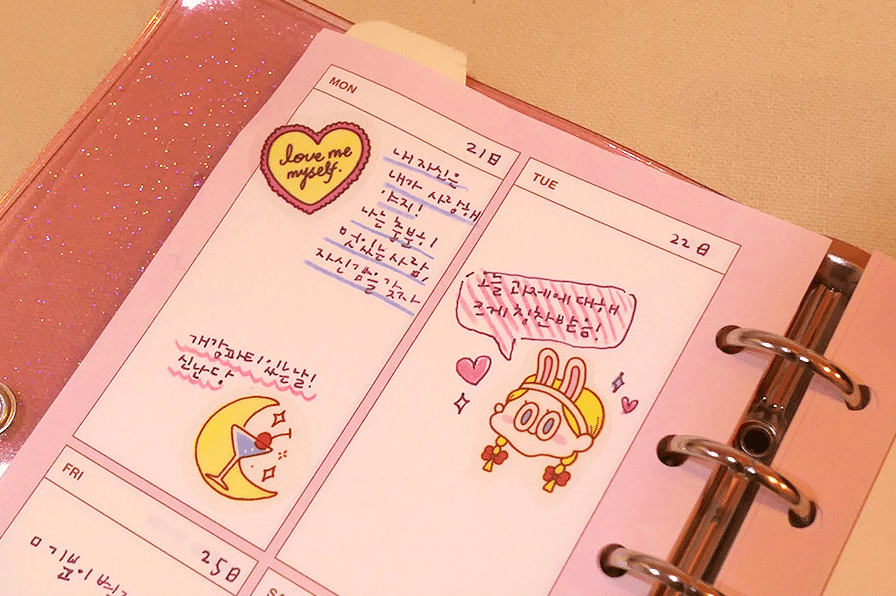 MON
21日
love me
myself.
내 자신은
내가 사랑해
야지!
나는 충분히
멋있는 사람,
자신감을 갖자
개강파티 있는날!
신난당
TUE
22日
오늘 과제에 대해
크게 칭찬받음!
FRI
25日
기분이